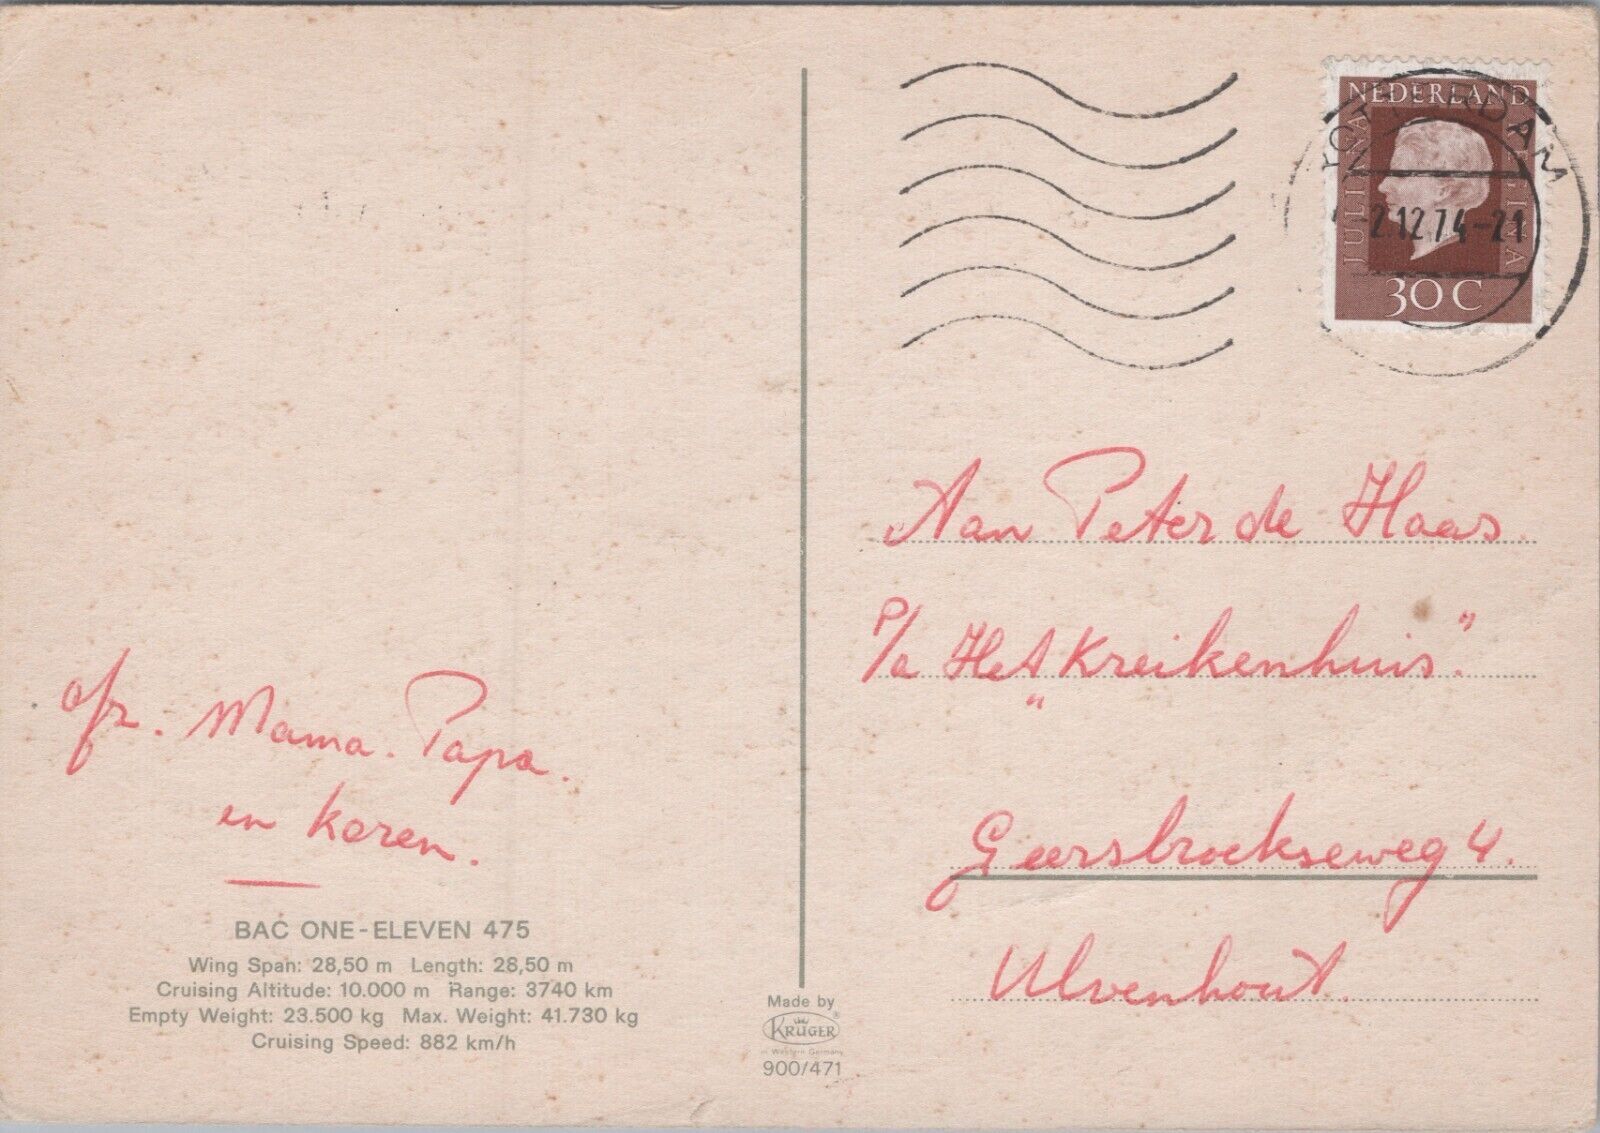 NEDERLAND
JULIANA REGINA
30 C
ROTTERDAM
2.12.74-21
Aan Peter de Haas.
P/a Het "Kreikenhuis".
Geersbroekseweg 4.
Ulvenhout.
fr. Mama. Papa.
en Karen.
BAC ONE-ELEVEN 475
Wing Span: 28,50 m Length: 28,50 m
Cruising Altitude: 10.000 m Range: 3740 km
Empty Weight: 23.500 kg Max. Weight: 41.730 kg
Cruising Speed: 882 km/h
Made by
KRÜGER®
in Western Germany
900/471